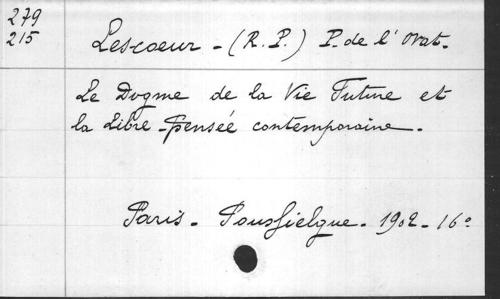 279
215
Lescoeur - (R. P.) P. de l' Orat.
Le Dogme de la Vie Future et
la Libre-pensée contemporaine.
Paris - Poussielgue - 1902 - 16°